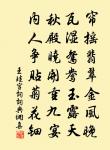 帘摇翡翠金风晚
瓦湿鸳鸯玉露天
秋殿晓开重九宴
内人争贴菊花钿
王珪宫词词典网春